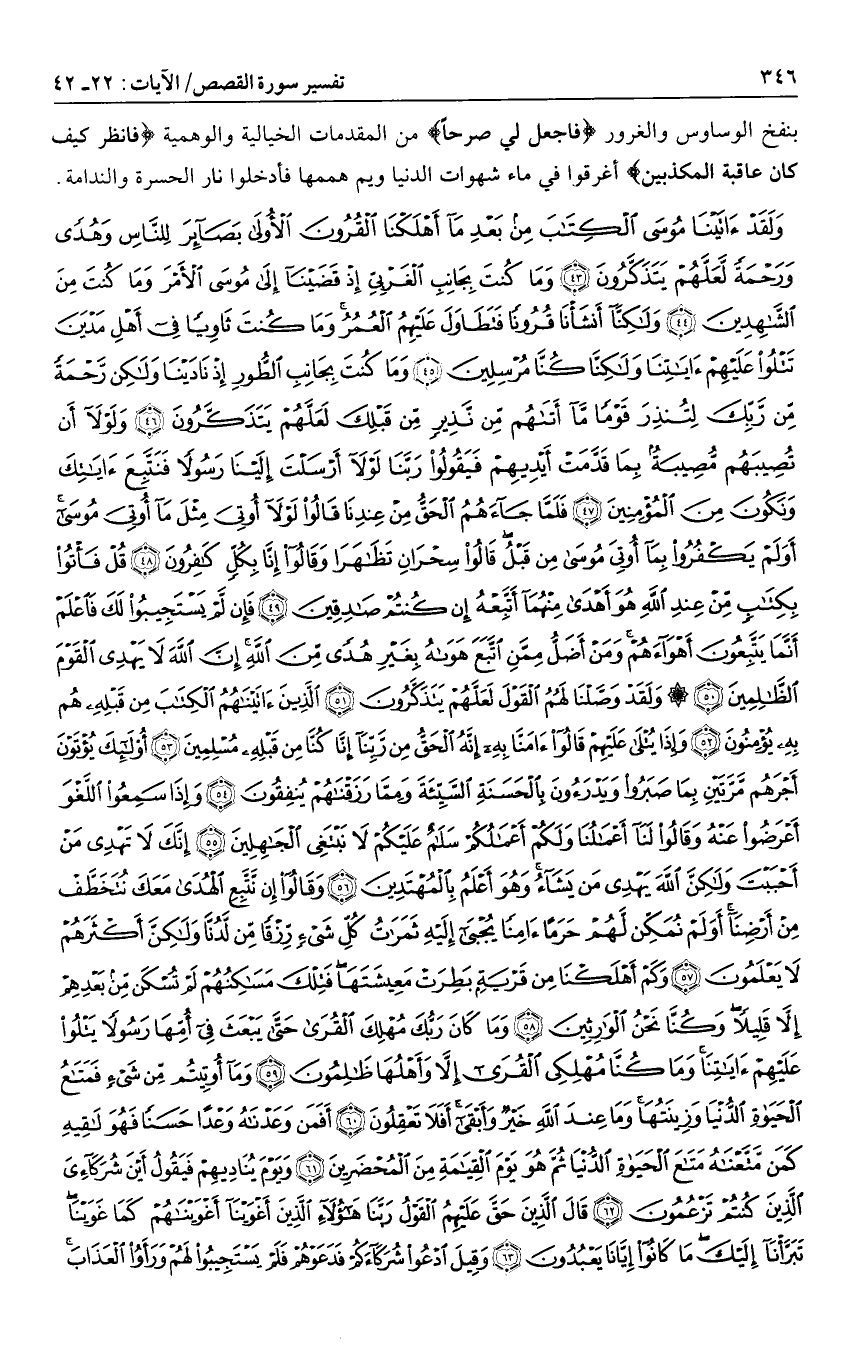 ٣٤٦ تفسير سورة القصص/ الآيات: ٢٢ـ ٤٢
بنفخ الوساوس والغرور ﴿فاجعل لي صرحاً﴾ من المقدمات الخيالية والوهمية ﴿فانظر كيف
كان عاقبة المكذبين﴾ أغرقوا في ماء شهوات الدنيا ويم هممها فأدخلوا نار الحسرة والندامة.
وَلَقَدْ ءَاتَيْنَا مُوسَى ٱلْكِتَٰبَ مِنۢ بَعْدِ مَآ أَهْلَكْنَا ٱلْقُرُونَ ٱلْأُولَىٰ بَصَآئِرَ لِلنَّاسِ وَهُدًى
وَرَحْمَةً لَّعَلَّهُمْ يَتَذَكَّرُونَ ﴿٤٣﴾ وَمَا كُنتَ بِجَانِبِ ٱلْغَرْبِىِّ إِذْ قَضَيْنَآ إِلَىٰ مُوسَى ٱلْأَمْرَ وَمَا كُنتَ مِنَ
ٱلشَّٰهِدِينَ ﴿٤٤﴾ وَلَٰكِنَّآ أَنشَأْنَا قُرُونًا فَتَطَاوَلَ عَلَيْهِمُ ٱلْعُمُرُ ۚ وَمَا كُنتَ ثَاوِيًا فِىٓ أَهْلِ مَدْيَنَ
تَتْلُوا۟ عَلَيْهِمْ ءَايَٰتِنَا وَلَٰكِنَّا كُنَّا مُرْسِلِينَ ﴿٤٥﴾ وَمَا كُنتَ بِجَانِبِ ٱلطُّورِ إِذْ نَادَيْنَا وَلَٰكِن رَّحْمَةً
مِّن رَّبِّكَ لِتُنذِرَ قَوْمًا مَّآ أَتَىٰهُم مِّن نَّذِيرٍ مِّن قَبْلِكَ لَعَلَّهُمْ يَتَذَكَّرُونَ ﴿٤٦﴾ وَلَوْلَآ أَن
تُصِيبَهُم مُّصِيبَةٌۢ بِمَا قَدَّمَتْ أَيْدِيهِمْ فَيَقُولُوا۟ رَبَّنَا لَوْلَآ أَرْسَلْتَ إِلَيْنَا رَسُولًا فَنَتَّبِعَ ءَايَٰتِكَ
وَنَكُونَ مِنَ ٱلْمُؤْمِنِينَ ﴿٤٧﴾ فَلَمَّا جَآءَهُمُ ٱلْحَقُّ مِنْ عِندِنَا قَالُوا۟ لَوْلَآ أُوتِىَ مِثْلَ مَآ أُوتِىَ مُوسَىٰٓ ۚ
أَوَلَمْ يَكْفُرُوا۟ بِمَآ أُوتِىَ مُوسَىٰ مِن قَبْلُ ۖ قَالُوا۟ سِحْرَانِ تَظَٰهَرَا وَقَالُوٓا۟ إِنَّا بِكُلٍّ كَٰفِرُونَ ﴿٤٨﴾ قُلْ فَأْتُوا۟
بِكِتَٰبٍ مِّنْ عِندِ ٱللَّهِ هُوَ أَهْدَىٰ مِنْهُمَآ أَتَّبِعْهُ إِن كُنتُمْ صَٰدِقِينَ ﴿٤٩﴾ فَإِن لَّمْ يَسْتَجِيبُوا۟ لَكَ فَٱعْلَمْ
أَنَّمَا يَتَّبِعُونَ أَهْوَآءَهُمْ ۚ وَمَنْ أَضَلُّ مِمَّنِ ٱتَّبَعَ هَوَىٰهُ بِغَيْرِ هُدًى مِّنَ ٱللَّهِ ۚ إِنَّ ٱللَّهَ لَا يَهْدِى ٱلْقَوْمَ
ٱلظَّٰلِمِينَ ﴿٥٠﴾ ۞ وَلَقَدْ وَصَّلْنَا لَهُمُ ٱلْقَوْلَ لَعَلَّهُمْ يَتَذَكَّرُونَ ﴿٥١﴾ ٱلَّذِينَ ءَاتَيْنَٰهُمُ ٱلْكِتَٰبَ مِن قَبْلِهِۦ هُم
بِهِۦ يُؤْمِنُونَ ﴿٥٢﴾ وَإِذَا يُتْلَىٰ عَلَيْهِمْ قَالُوٓا۟ ءَامَنَّا بِهِۦٓ إِنَّهُ ٱلْحَقُّ مِن رَّبِّنَآ إِنَّا كُنَّا مِن قَبْلِهِۦ مُسْلِمِينَ ﴿٥٣﴾ أُو۟لَٰٓئِكَ يُؤْتَوْنَ
أَجْرَهُم مَّرَّتَيْنِ بِمَا صَبَرُوا۟ وَيَدْرَءُونَ بِٱلْحَسَنَةِ ٱلسَّيِّئَةَ وَمِمَّا رَزَقْنَٰهُمْ يُنفِقُونَ ﴿٥٤﴾ وَإِذَا سَمِعُوا۟ ٱللَّغْوَ
أَعْرَضُوا۟ عَنْهُ وَقَالُوا۟ لَنَآ أَعْمَٰلُنَا وَلَكُمْ أَعْمَٰلُكُمْ سَلَٰمٌ عَلَيْكُمْ لَا نَبْتَغِى ٱلْجَٰهِلِينَ ﴿٥٥﴾ إِنَّكَ لَا تَهْدِى مَنْ
أَحْبَبْتَ وَلَٰكِنَّ ٱللَّهَ يَهْدِى مَن يَشَآءُ ۚ وَهُوَ أَعْلَمُ بِٱلْمُهْتَدِينَ ﴿٥٦﴾ وَقَالُوٓا۟ إِن نَّتَّبِعِ ٱلْهُدَىٰ مَعَكَ نُتَخَطَّفْ
مِنْ أَرْضِنَآ ۚ أَوَلَمْ نُمَكِّن لَّهُمْ حَرَمًا ءَامِنًا يُجْبَىٰٓ إِلَيْهِ ثَمَرَٰتُ كُلِّ شَىْءٍ رِّزْقًا مِّن لَّدُنَّا وَلَٰكِنَّ أَكْثَرَهُمْ
لَا يَعْلَمُونَ ﴿٥٧﴾ وَكَمْ أَهْلَكْنَا مِن قَرْيَةٍۭ بَطِرَتْ مَعِيشَتَهَا ۖ فَتِلْكَ مَسَٰكِنُهُمْ لَمْ تُسْكَن مِّنۢ بَعْدِهِمْ
إِلَّا قَلِيلًا ۖ وَكُنَّا نَحْنُ ٱلْوَٰرِثِينَ ﴿٥٨﴾ وَمَا كَانَ رَبُّكَ مُهْلِكَ ٱلْقُرَىٰ حَتَّىٰ يَبْعَثَ فِىٓ أُمِّهَا رَسُولًا يَتْلُوا۟
عَلَيْهِمْ ءَايَٰتِنَا ۚ وَمَا كُنَّا مُهْلِكِى ٱلْقُرَىٰٓ إِلَّا وَأَهْلُهَا ظَٰلِمُونَ ﴿٥٩﴾ وَمَآ أُوتِيتُم مِّن شَىْءٍ فَمَتَٰعُ
ٱلْحَيَوٰةِ ٱلدُّنْيَا وَزِينَتُهَا ۚ وَمَا عِندَ ٱللَّهِ خَيْرٌ وَأَبْقَىٰٓ ۚ أَفَلَا تَعْقِلُونَ ﴿٦٠﴾ أَفَمَن وَعَدْنَٰهُ وَعْدًا حَسَنًا فَهُوَ لَٰقِيهِ
كَمَن مَّتَّعْنَٰهُ مَتَٰعَ ٱلْحَيَوٰةِ ٱلدُّنْيَا ثُمَّ هُوَ يَوْمَ ٱلْقِيَٰمَةِ مِنَ ٱلْمُحْضَرِينَ ﴿٦١﴾ وَيَوْمَ يُنَادِيهِمْ فَيَقُولُ أَيْنَ شُرَكَآءِىَ
ٱلَّذِينَ كُنتُمْ تَزْعُمُونَ ﴿٦٢﴾ قَالَ ٱلَّذِينَ حَقَّ عَلَيْهِمُ ٱلْقَوْلُ رَبَّنَا هَٰٓؤُلَآءِ ٱلَّذِينَ أَغْوَيْنَآ أَغْوَيْنَٰهُمْ كَمَا غَوَيْنَا ۖ
تَبَرَّأْنَآ إِلَيْكَ ۖ مَا كَانُوٓا۟ إِيَّانَا يَعْبُدُونَ ﴿٦٣﴾ وَقِيلَ ٱدْعُوا۟ شُرَكَآءَكُمْ فَدَعَوْهُمْ فَلَمْ يَسْتَجِيبُوا۟ لَهُمْ وَرَأَوُا۟ ٱلْعَذَابَ ۚ